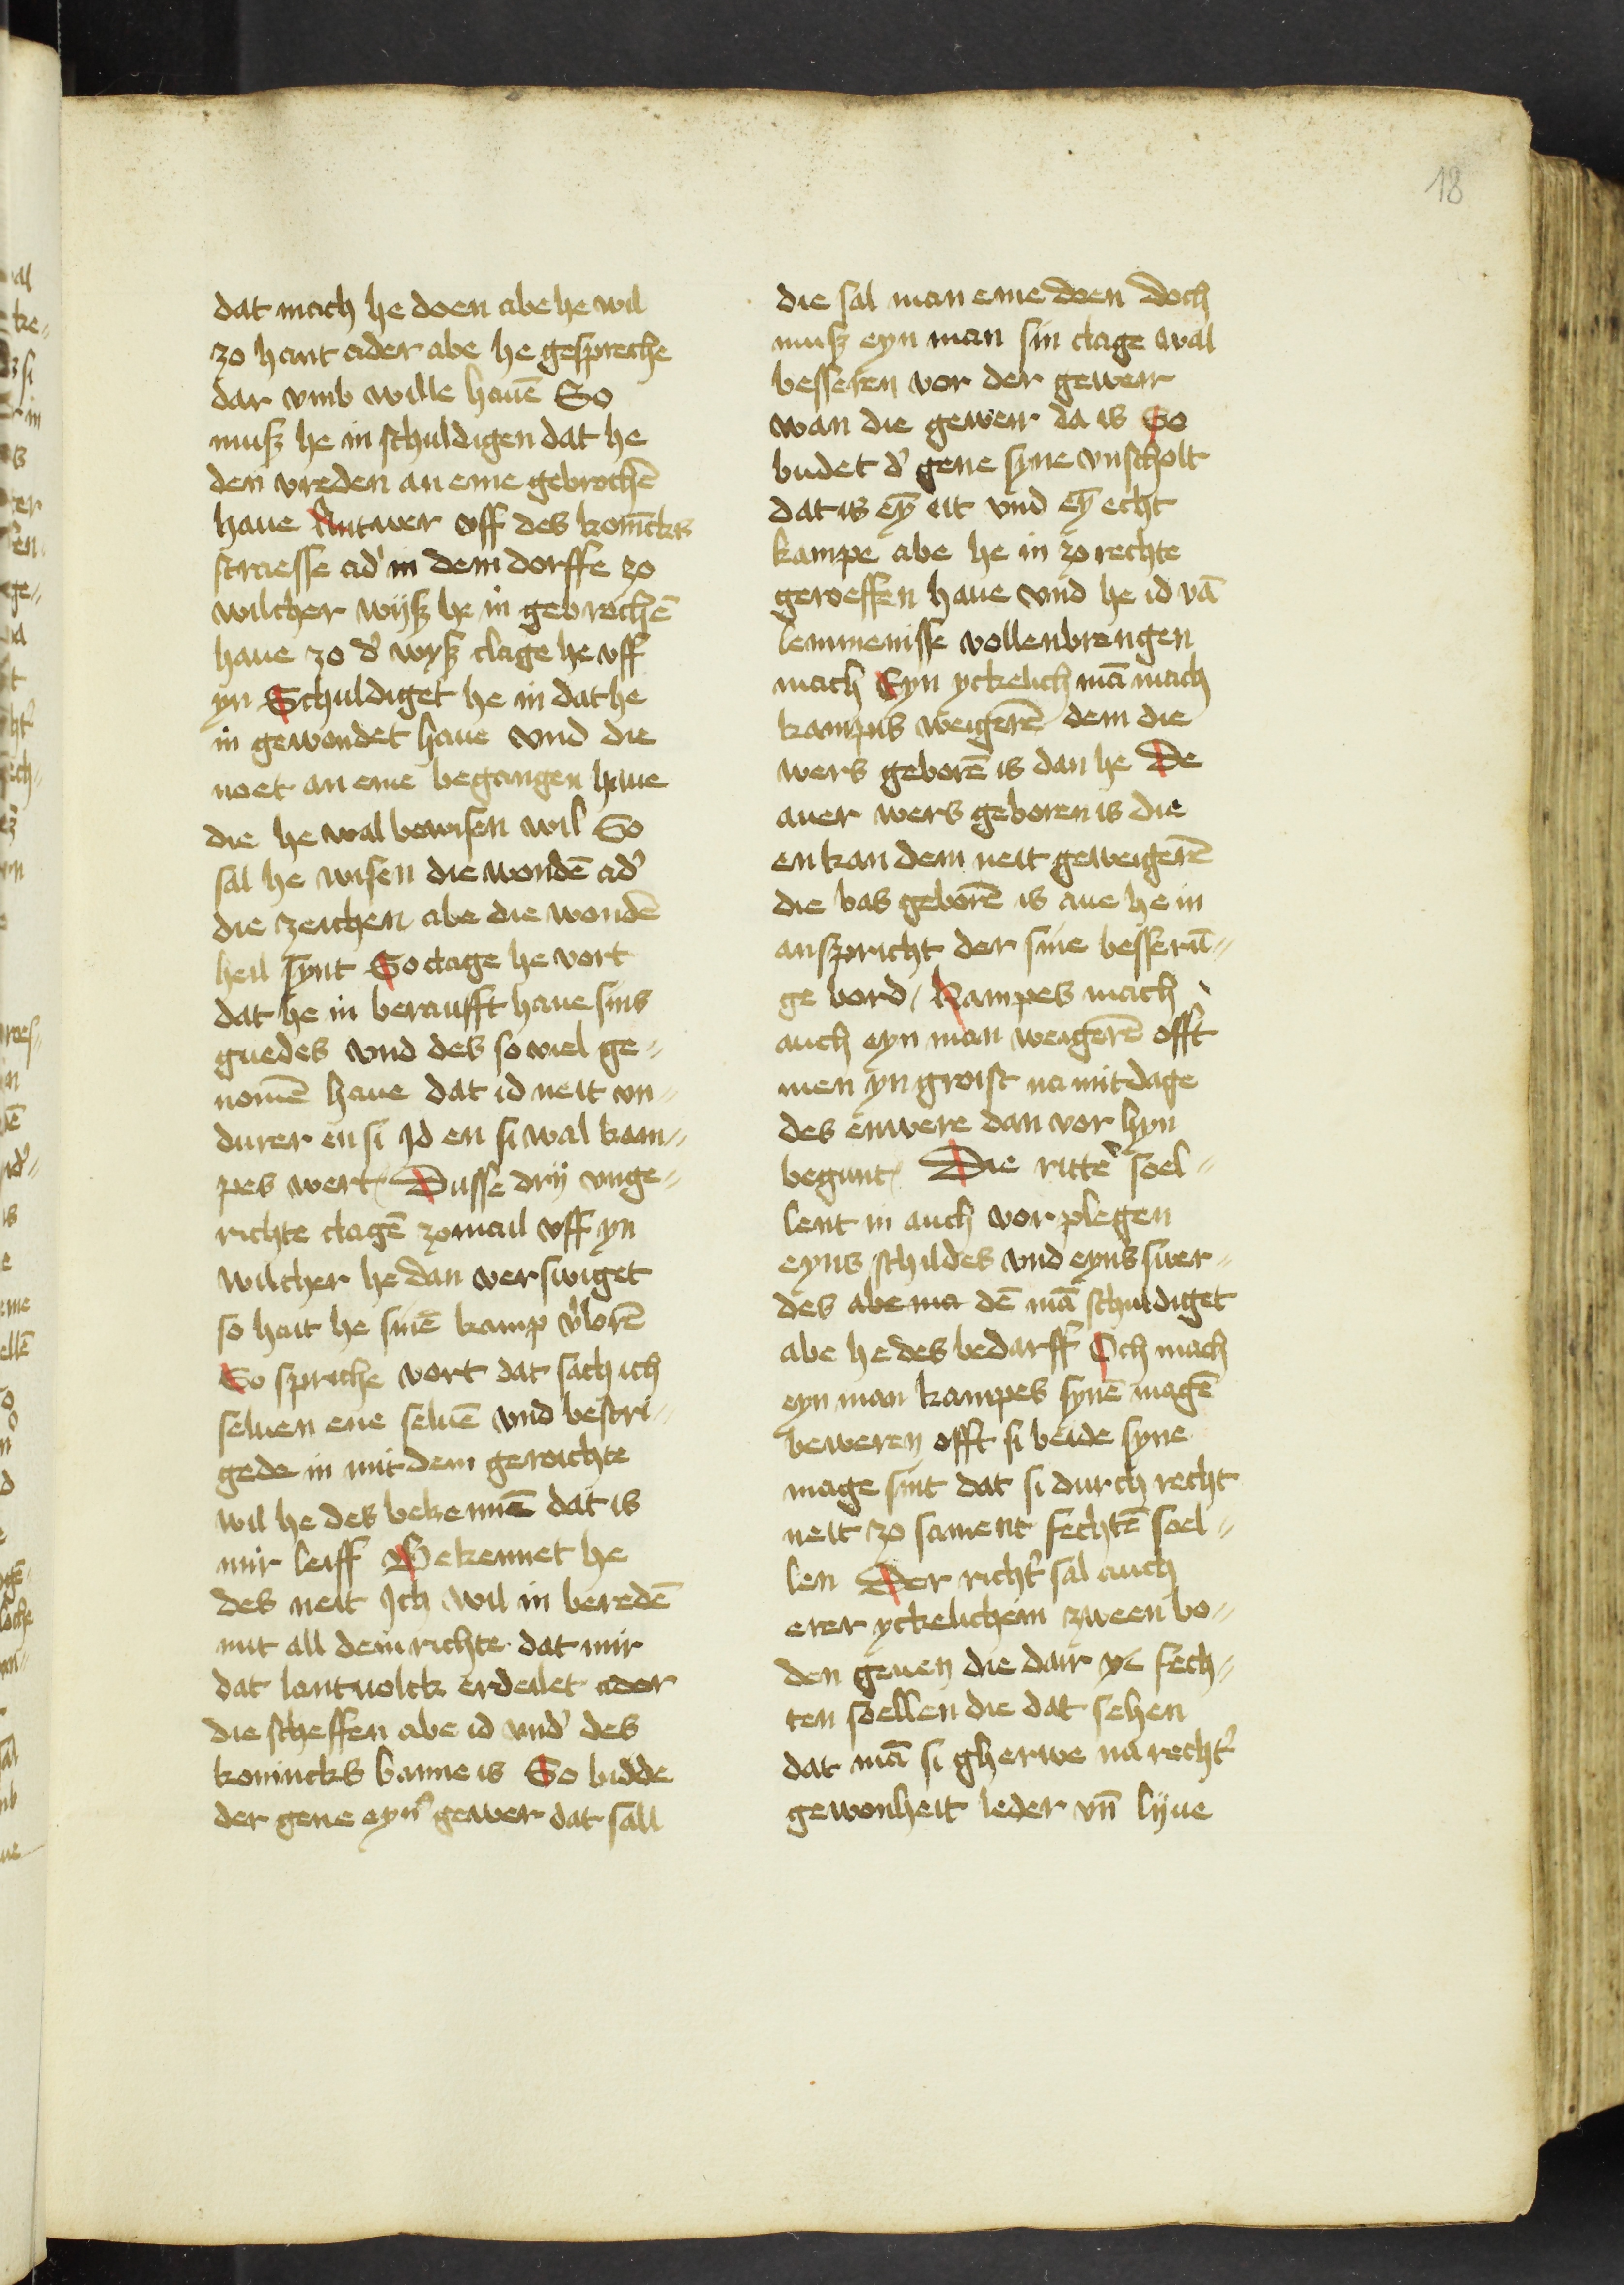 18
dat mach he doen abe he wil
zo hant ader abe he gespreche
dar vmb wille hauē So
muß he in schuldigen dat he
den vreden an eme gebrochē
haue Antwer vff des konīcks
straesse ad' in dem dorffe zo
wilcher wijß he in gebrochē
haue zo d' wyß clage he vff
yn Schuldiget he in dat he
in gewondet haue vnd die
noet an eme begangen haue
die he wal bewisen wil So
sal he wisen die wondē ad'
die zeichen abe die wondē
heil synt So clage he vort
dat he in beraufft haue sins
guedes vnd des so viel ge-
nomē haue dat id neit vn-
durer en si Id en si wal kam-
pes wert Dusse drij vnge-
richte clagē zomail vff yn
wilcher he dan verswiget
so hait he sinē kamp v'lorē
So spriche vort dat sach ich
seluen ene seluē vnd bescri-
gede in mit dem geroichte
wil he des bekennē dat is
mir leiff Bekennet he
des neit Ich wil in beredē
mit all dem richte dat mir
dat lantuolck erdeilet ader
die scheffen abe id vnd' des
konincks banne is So bidde
der gene eyn' gewer dat sall
die sal man eme doen doch
muß eyn man sin clage wal
besseren vor der gewer
wan die gewer da is So
budet d' gene syne vnscholt
dat is eȳ eit vnd eȳ echt
kampe abe he in zo rechte
geroeffen haue vnd he id vā
lemmenisse vollenbrengen
mach Eyn yckelich mā mach
kamps weigerē dem die
wers geborē is dan he De
auer wers geboren is die
en kan dem neit geweigerē
die bas geborē is aue he in
anspricht der sine besserū-
ge bord Kampes mach
auch eyn man weigerē offt
men yn groist na mitdage
des enwere dan vor hyn
begunt Die rittē' soel-
lent in auch vor plegen
eyns schildes vnd eyns swer-
des abe ma dē mā schuldiget
abe he des bedarff Och mach
eyn man kampes synē magē
beweren offt si beide syne
mage sint dat si durch recht
neit zo sament fechtē soel-
len Der richt' sal auch
erer yckelichem zween bo-
den geuen die dair ye fech-
ten soellen die dat sehen
dat mā si gherwe na recht'
gewonheit leder vn̄ lijne